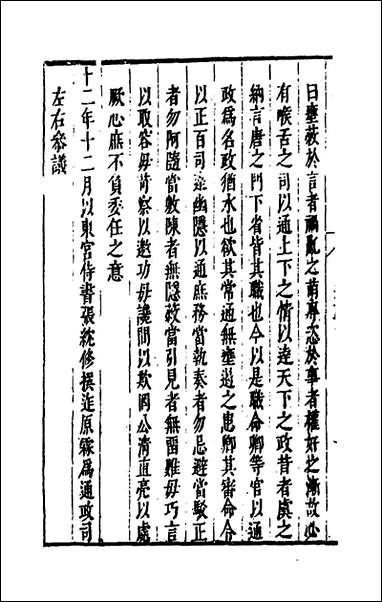 日壅蔽於言者禍亂之萌專恣於事者權奸之漸故必
有喉舌之司以通上下之情以達天下之政昔者虞之
納言唐之門下省皆其職也今以是職命卿等官以通
政為名政猶水也欲其常通無壅遏之患卿其審命令
以正百司達幽隱以通庶務當執奏者勿忌避當駁正
者勿阿隨當敷陳者無隱蔽當引見者無留難毋巧言
以取容毋苛察以邀功毋讒間以欺罔公清直亮以處
厥心庶不負委任之意
十二年十二月以東宮侍書張紞修撰迮原霖為通政司
左右參議